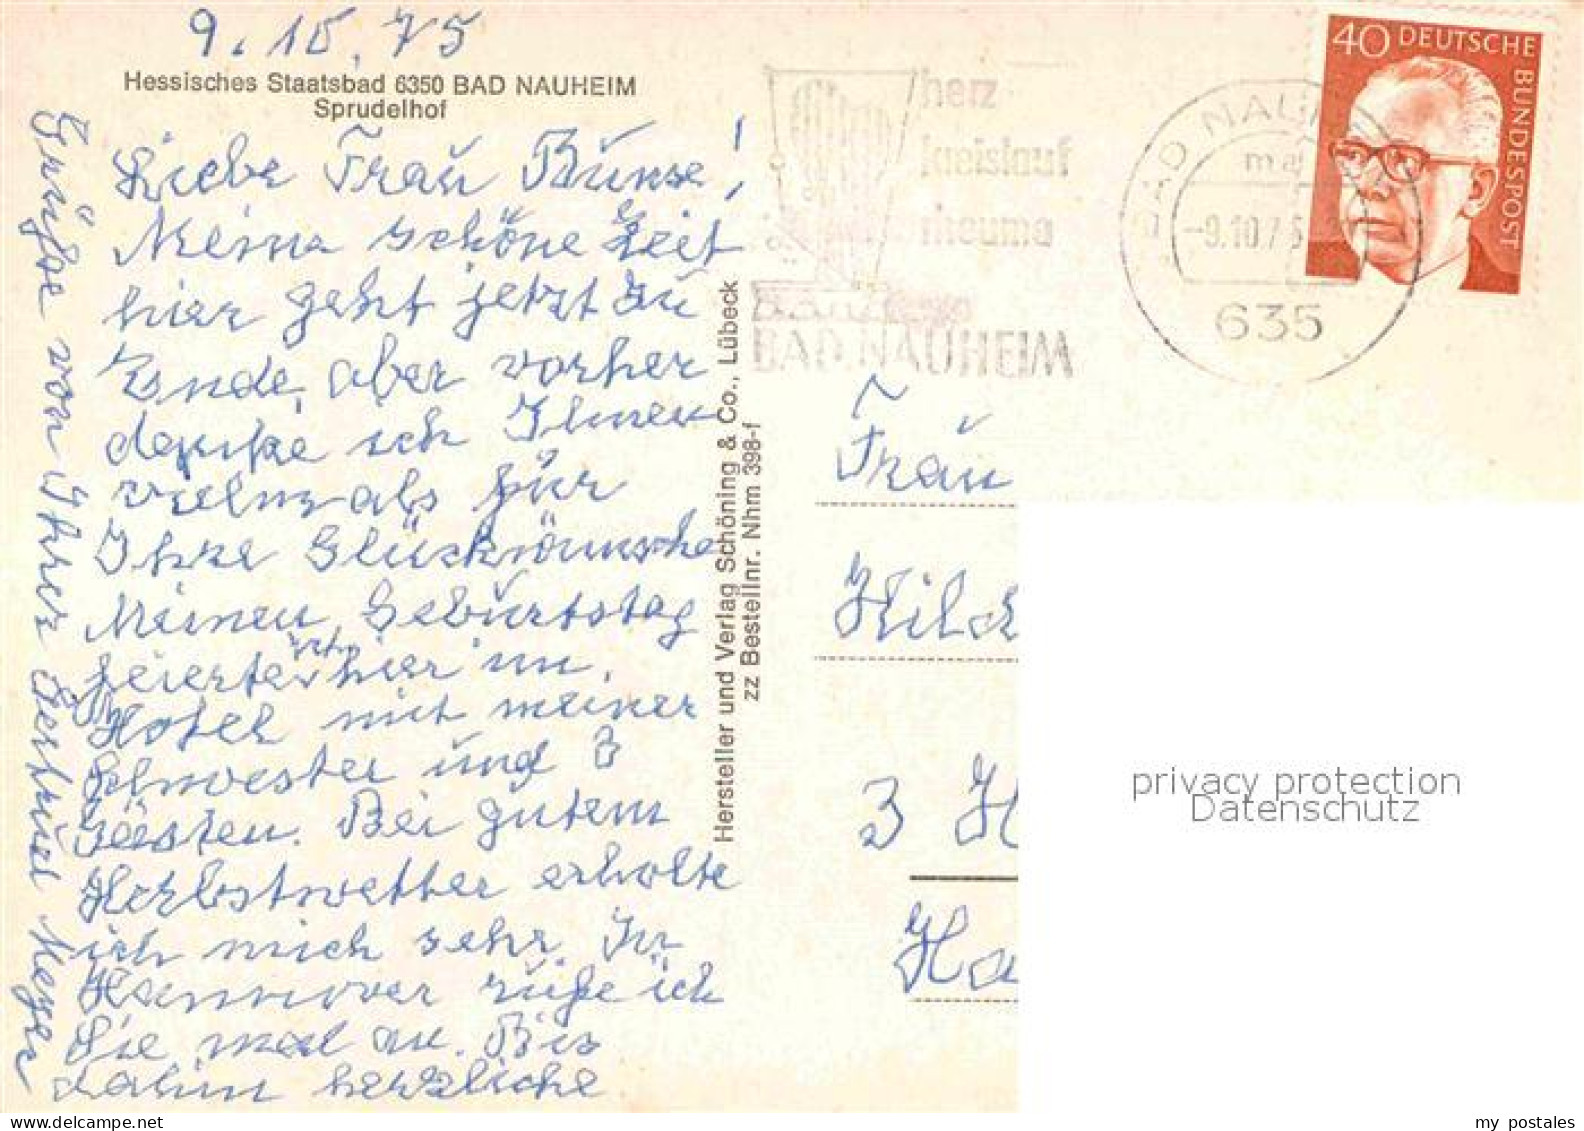 9.10.75
Hessisches Staatsbad 6350 BAD NAUHEIM
Sprudelhof
Liebe Frau Bunse!
Meine schöne Zeit
hier geht jetzt zu
Ende, aber vorher
danke ich Ihnen
vielmals für
Ihre Glückwünsche
Meinen Geburtstag
feierte ich hier im
Hotel mit meiner
Schwester und 3
Gästen. Bei gutem
Herbstwetter erholte
ich mich sehr. In
Hannover rufe ich
Sie mal an. Bis
dahin herzliche
Grüße von Ihrer Meyer
Hersteller und Verlag Schöning & Co., Lübeck
zz Bestellnr. Nhm 398-f
herz
kreislauf
rheuma
BAD NAUHEIM
BAD NAUH
-9.10.75
635
40 DEUTSCHE
BUNDESPOST
Frau
Hild
3 H
Ha
privacy protection
Datenschutz
my postales